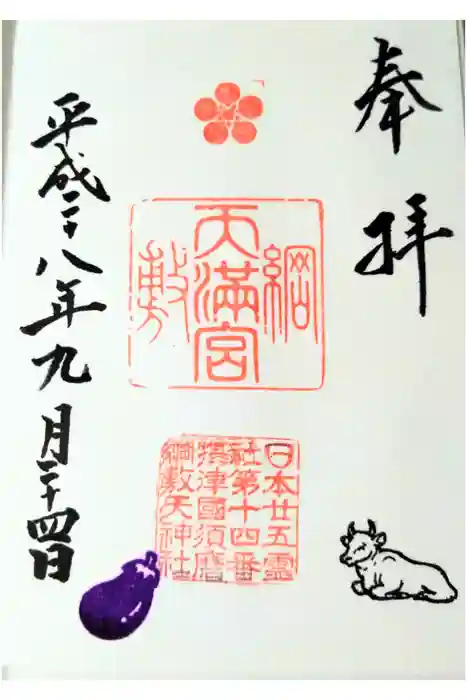 奉拝
綱敷天満宮
日本廿五霊
社第十四番
摂津國須磨
綱敷天神社
平成二十八年九月二十四日